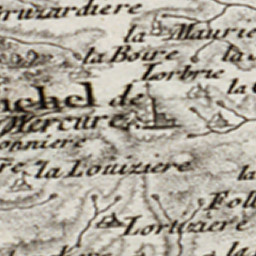 ruzardiere
la Maurie
la Boire
Lorbrie
la
la
chel de
Mercure
onniere
la Louiziere
la
Foll
Loruziere
la